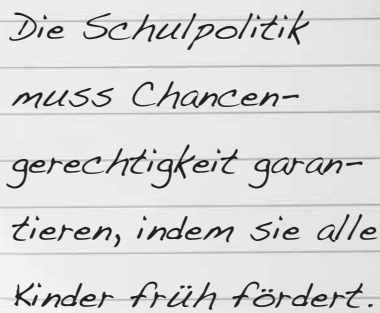 Die Schulpolitik
muss Chancen-
gerechtigkeit garan-
tieren, indem sie alle
Kinder früh fördert.